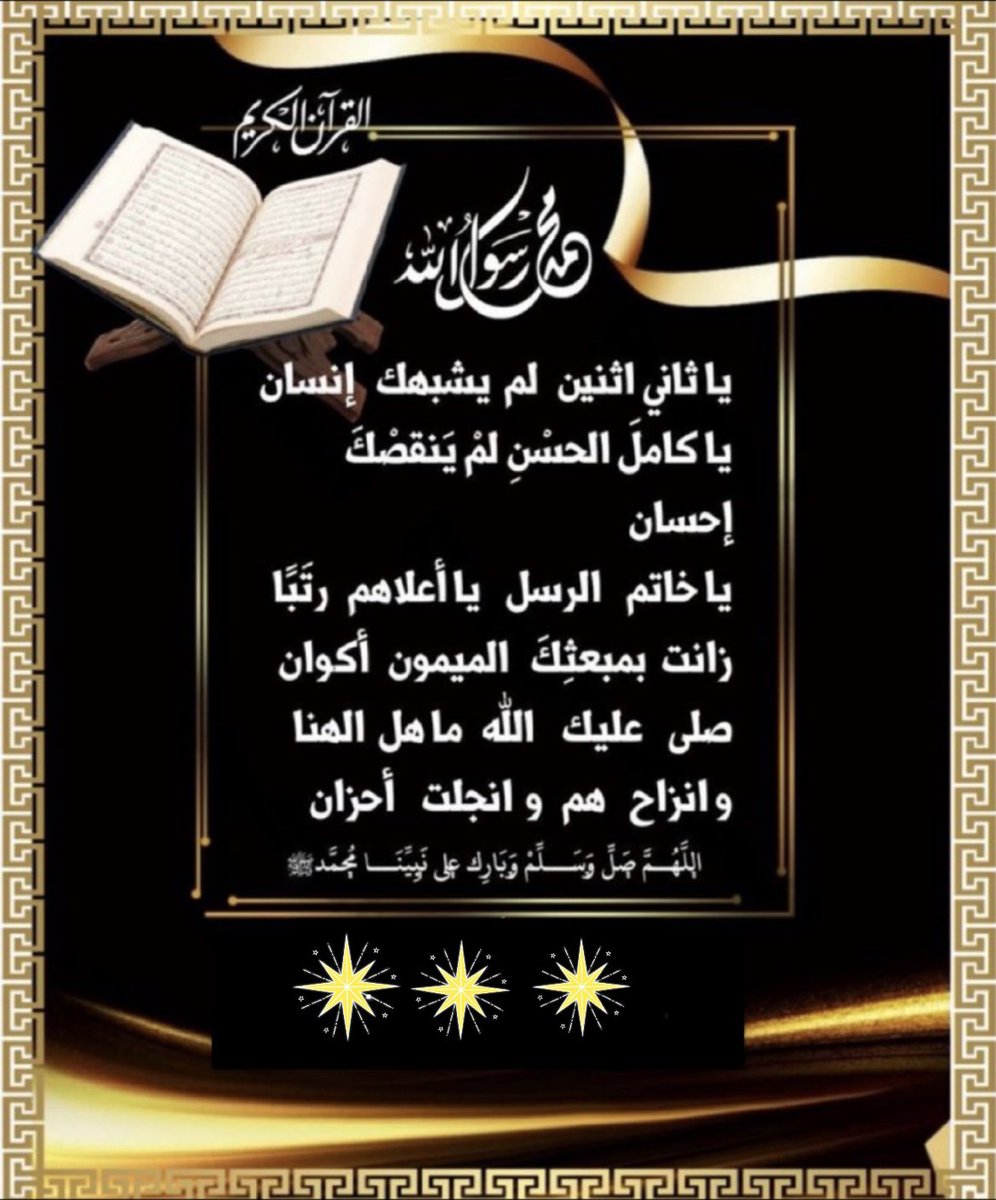 القرآن الكريم
محمد رسول الله
يا ثاني اثنين لم يشبهك إنسان
يا كاملَ الحسْنِ لمْ يَنقصْكَ
إحسان
يا خاتم الرسل يا أعلاهم رتَبًا
زانت بمبعثِكَ الميمون أكوان
صلى عليك الله ما هل الهنا
و انزاح هم و انجلت أحزان
اللَّهُمَّ صَلِّ وَسَلِّمْ وَبَارِك على نَبِيِّنَا مُحمَّد ﷺ